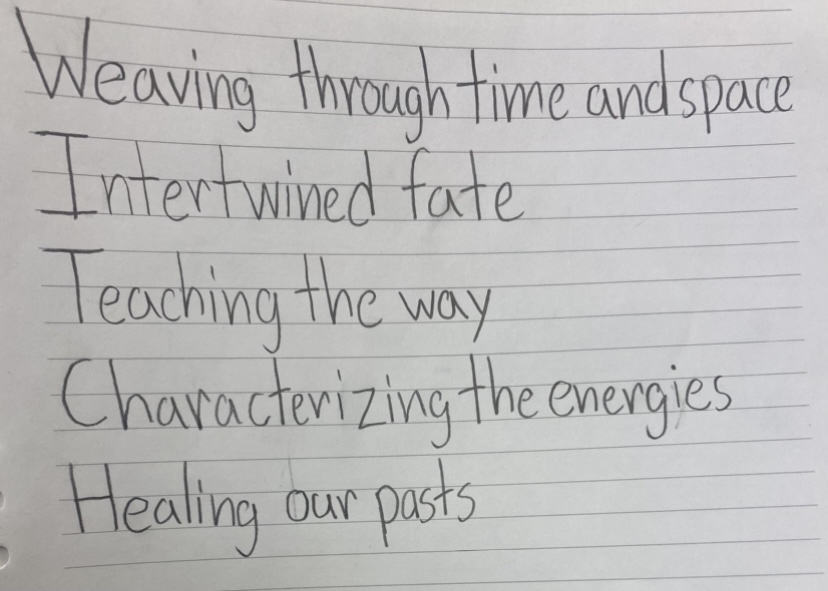 Weaving through time and space
Intertwined fate
Teaching the way
Characterizing the energies
Healing our pasts